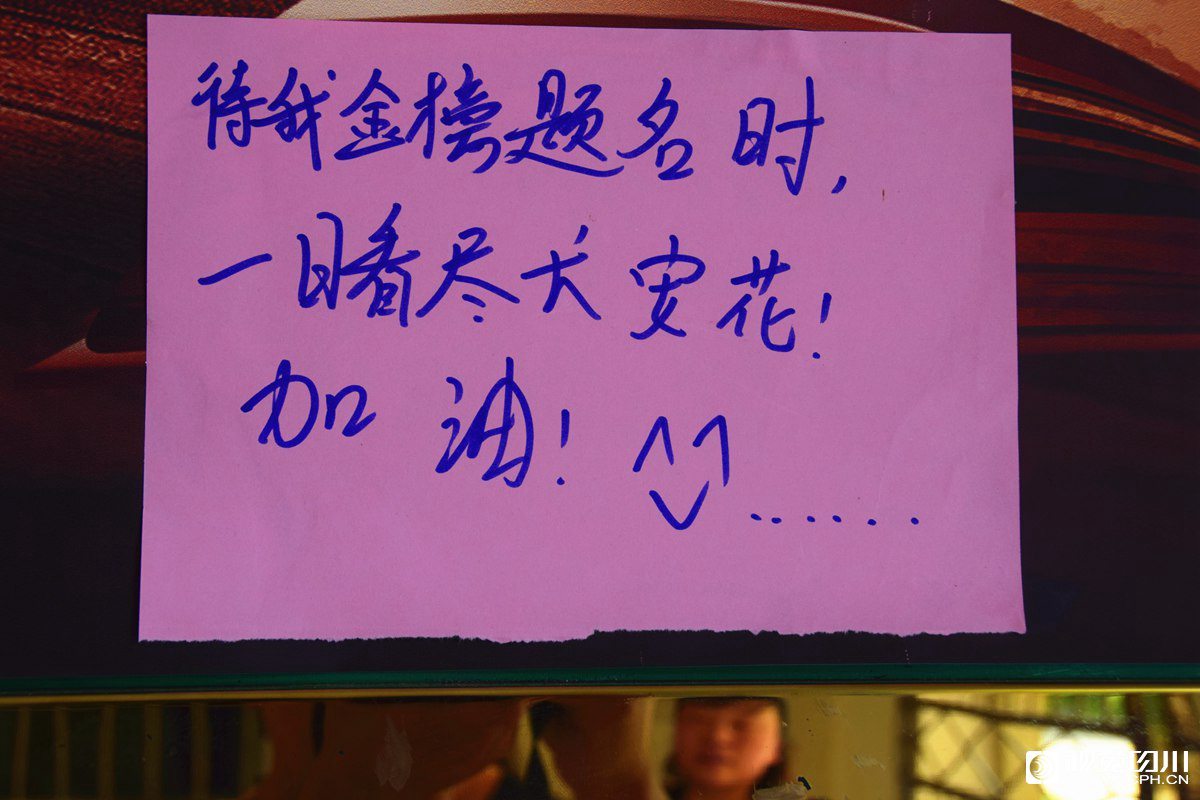 待我金榜题名时,
一日看尽长安花!
加油! ^^......
PH.CN